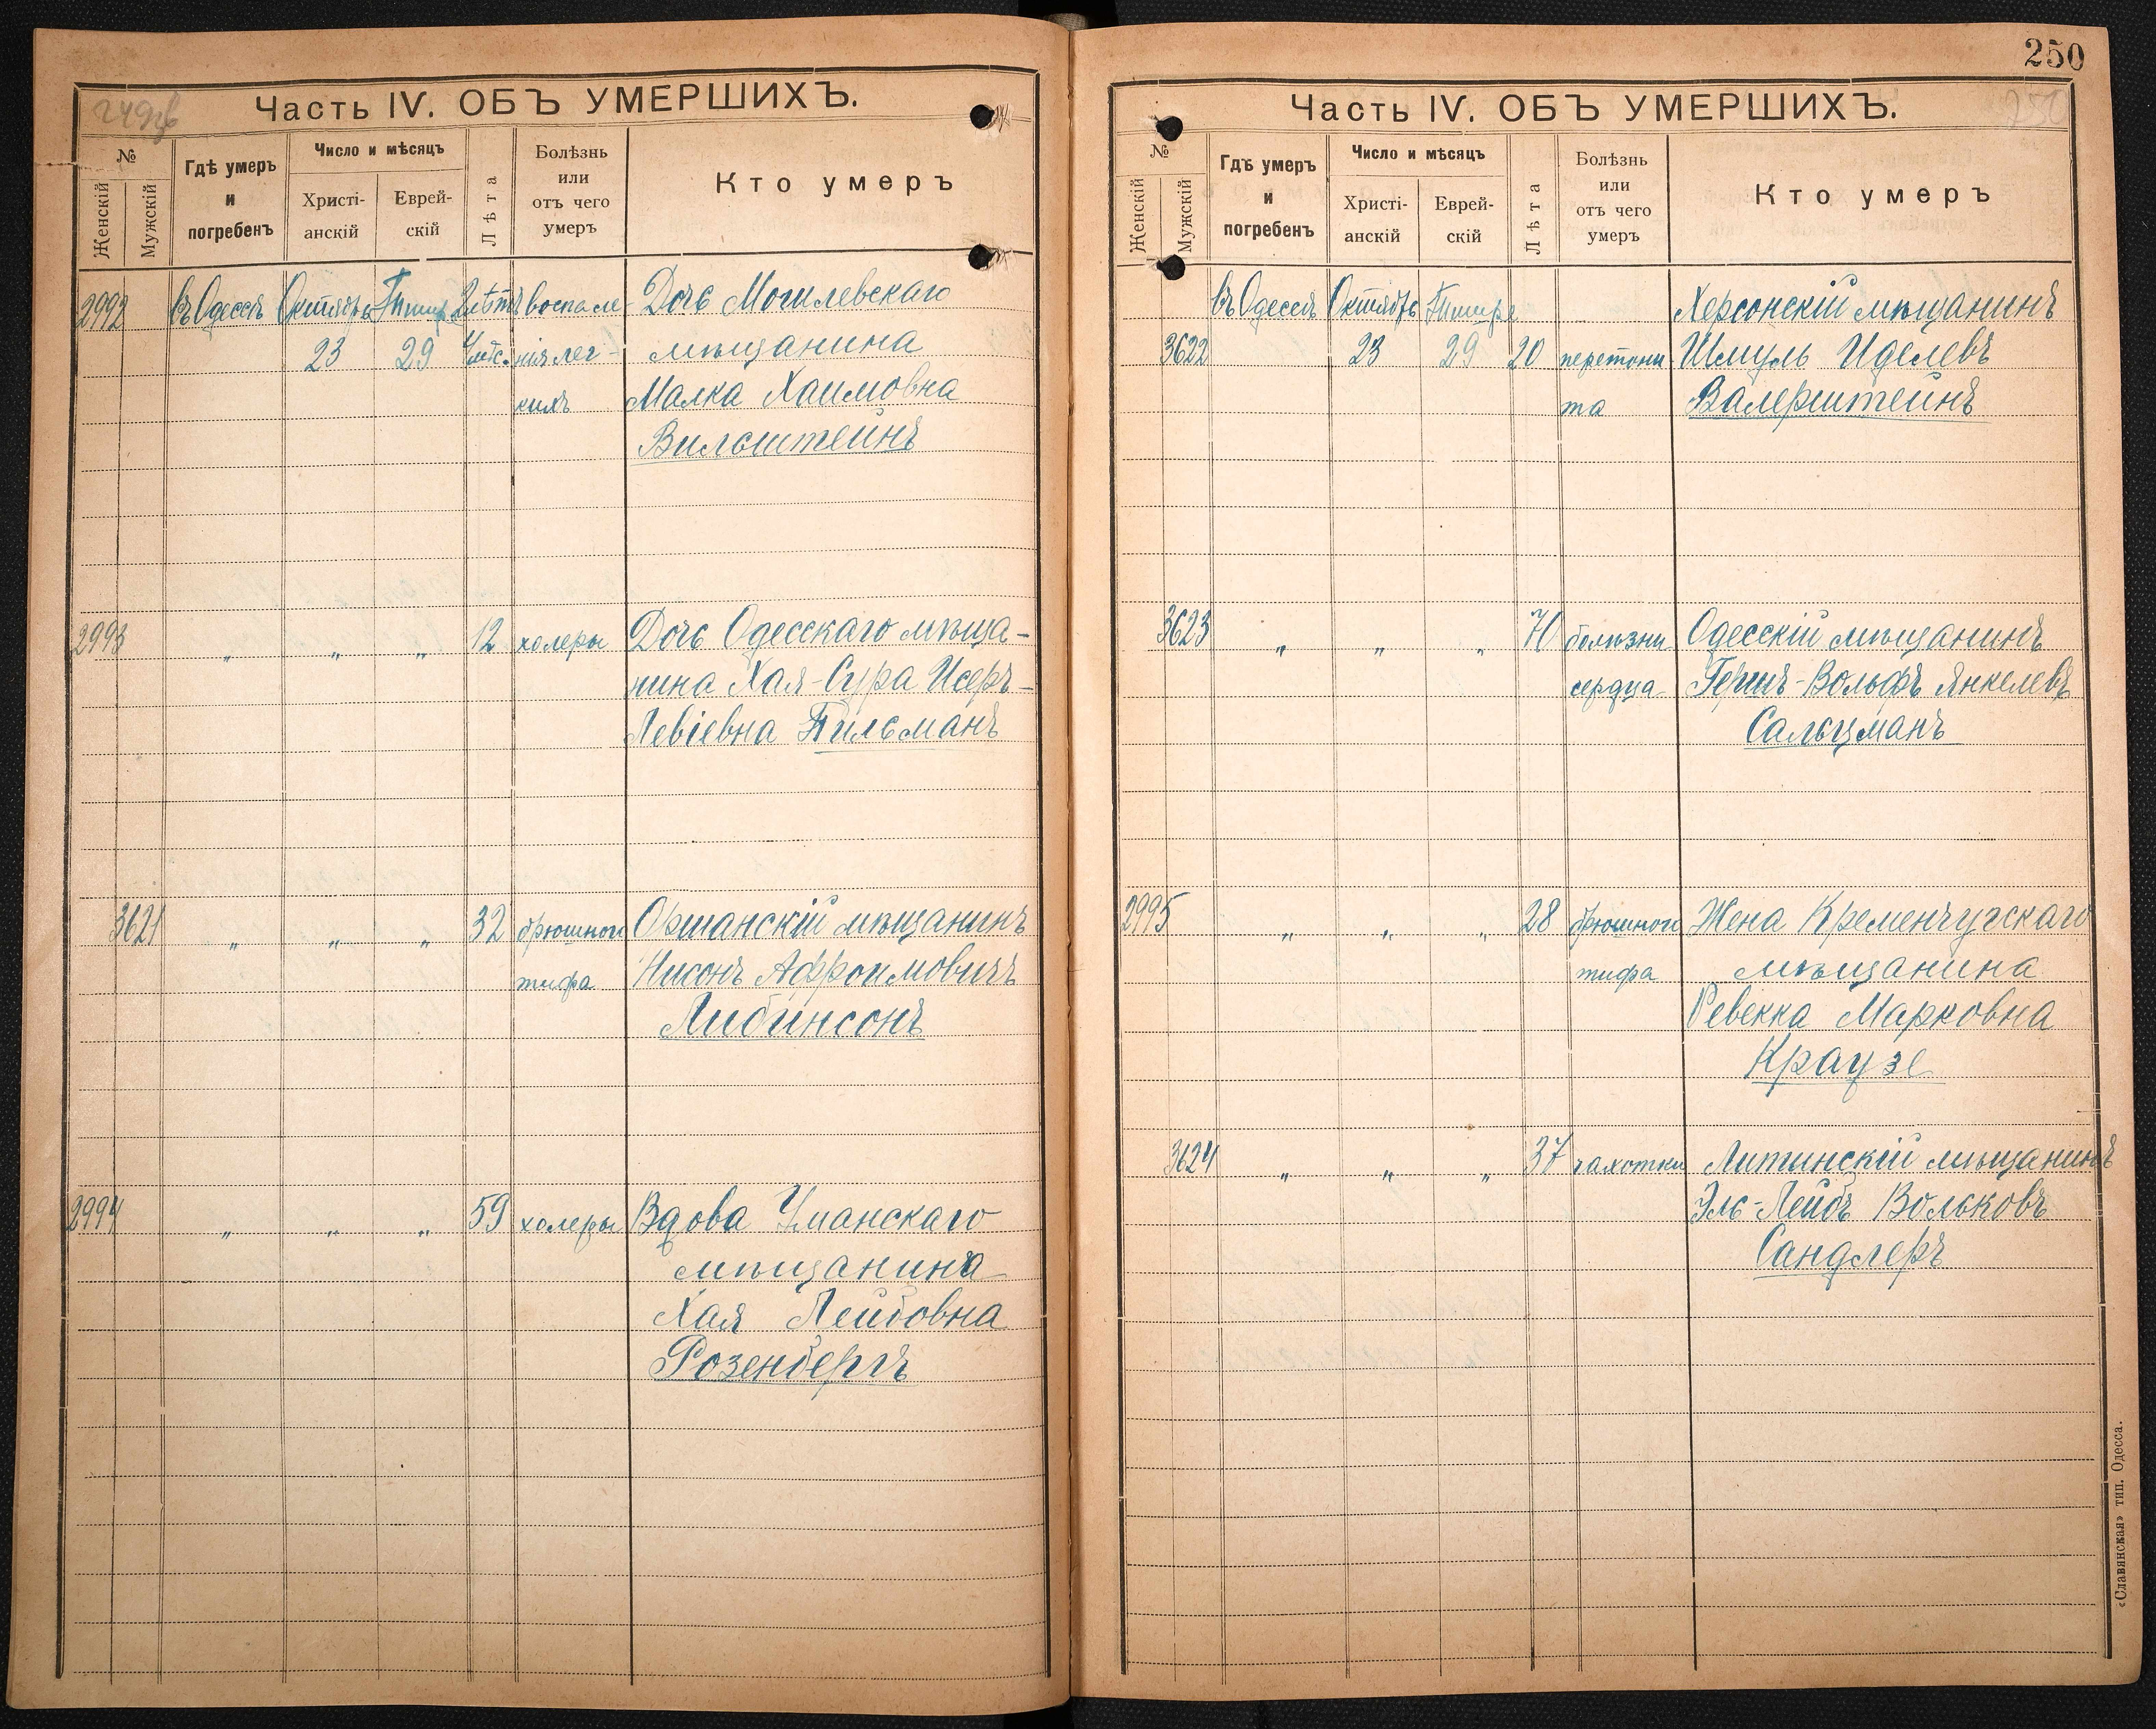 249об
Часть IV. ОБЪ УМЕРШИХЪ.
№
Женскій
Мужскій
Гдѣ умеръ и погребенъ
Число и мѣсяцъ
Христі-анскій
Еврей-скій
Лѣта
Болѣзнь или отъ чего умеръ
Кто умеръ
2992 въ Одессѣ Октябрь Тишр. 2 лѣтъ воспале- Дочь Могилевскаго
23 29 4 мѣс. нія лег- мѣщанина
кихъ Малка Хаимовна
Вильштейнъ
2993 „ „ „ 12 холеры Дочь Одесскаго мѣща-
нина Хая-Сура Исеръ-
Левіевна Тильсманъ
3621 „ „ „ 32 брюшного Оршанскій мѣщанинъ
тифа Нисонъ Афроимовичъ
Либинсонъ
2994 „ „ „ 59 холеры Вдова Уманскаго
мѣщанина
Хая Лейбовна
Розенбергъ
250
250
Часть IV. ОБЪ УМЕРШИХЪ.
№
Женскій
Мужскій
Гдѣ умеръ и погребенъ
Число и мѣсяцъ
Христі-анскій
Еврей-скій
Лѣта
Болѣзнь или отъ чего умеръ
Кто умеръ
въ Одессѣ Октябрь Тишре Херсонскій мѣщанинъ
3622 23 29 20 перетони Шмуль Иделевъ
та Валерштейнъ
3623 „ „ „ 70 болѣзни Одесскій мѣщанинъ
сердца Гершъ-Вольфъ Янкелевъ
Сальцманъ
2995 „ „ „ 28 брюшного Жена Кременчугскаго
тифа мѣщанина
Ревекка Марковна
Краузе
3624 „ „ „ 37 чахотки Литинскій мѣщанинъ
Эль-Лейбъ Вольковъ
Сандлеръ
«Славянская» тип. Одесса.